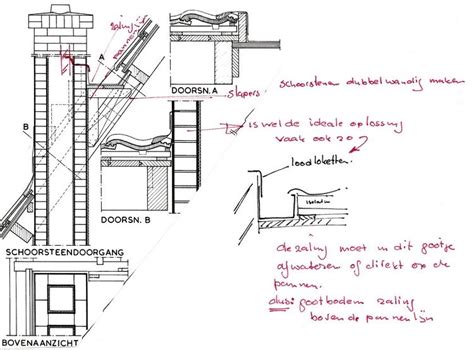 zaling
pannenlijn
A
DOORSN. A
slapers.
schoorstenen dubbelwandig maken
B
is wel de ideale oplossing
vaak ook zo
loodloketten.
DOORSN. B
SCHOORSTEENDOORGANG
de zaling moet in dit gootje
afwateren of direkt op de
pannen.
dus: gootbodem zaling
boven de pannenlijn
BOVENAANZICHT